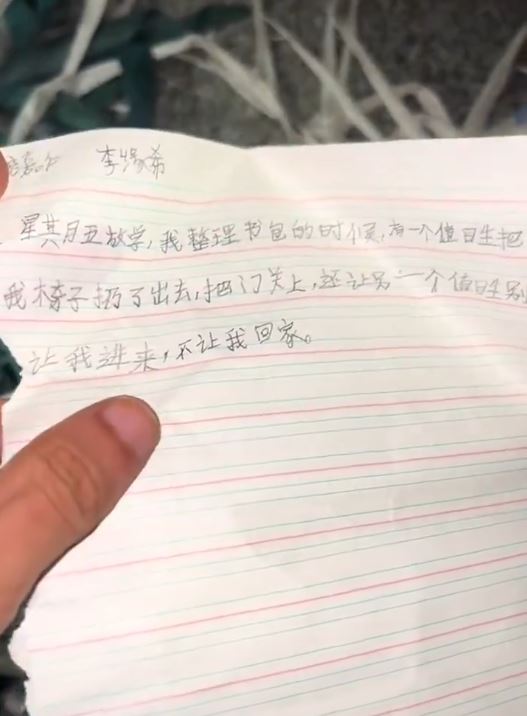 李缘希
星其月五放学,我整理书包的时候,有一个值日生把
我本子扔了出去,把门关上,还让另一个值日生别
让我进来,不让我回家。